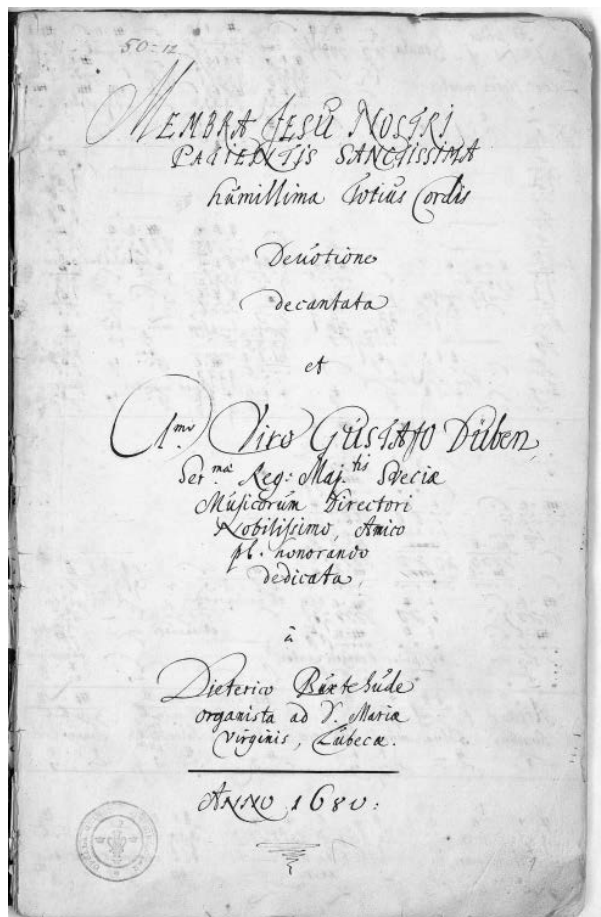 50=12
MEMBRA JESŮ NOSTRI
PATIENTIS SANCTISSIMA
hůmillima Totiůs Cordis
Devotione
decantata
et
Cl.mo Viro GůSTAFO Důben
Ser.mæ Reg: Maj.tis Sveciæ
Můsicorům Directori
Nobilissimo, Amico
pl. honorando
dedicata
à
Dieterico Bůxtehůde
organista ad S. Mariæ
Virginis, Lůbecæ.
ANNO 1680: